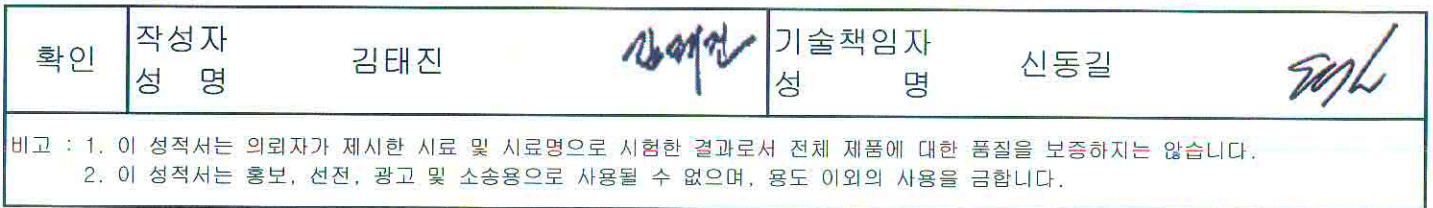 확인
작성자
성 명
김태진
김태진
기술책임자
성 명
신동길
비고 : 1. 이 성적서는 의뢰자가 제시한 시료 및 시료명으로 시험한 결과로서 전체 제품에 대한 품질을 보증하지는 않습니다.
2. 이 성적서는 홍보, 선전, 광고 및 소송용으로 사용될 수 없으며, 용도 이외의 사용을 금합니다.